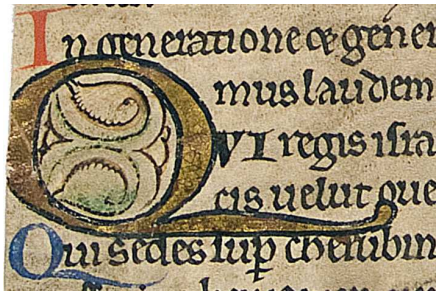 In generatione & gener
mus laudem
QVI regis isra
cis uelut oue
Qui sedes sup cherubin